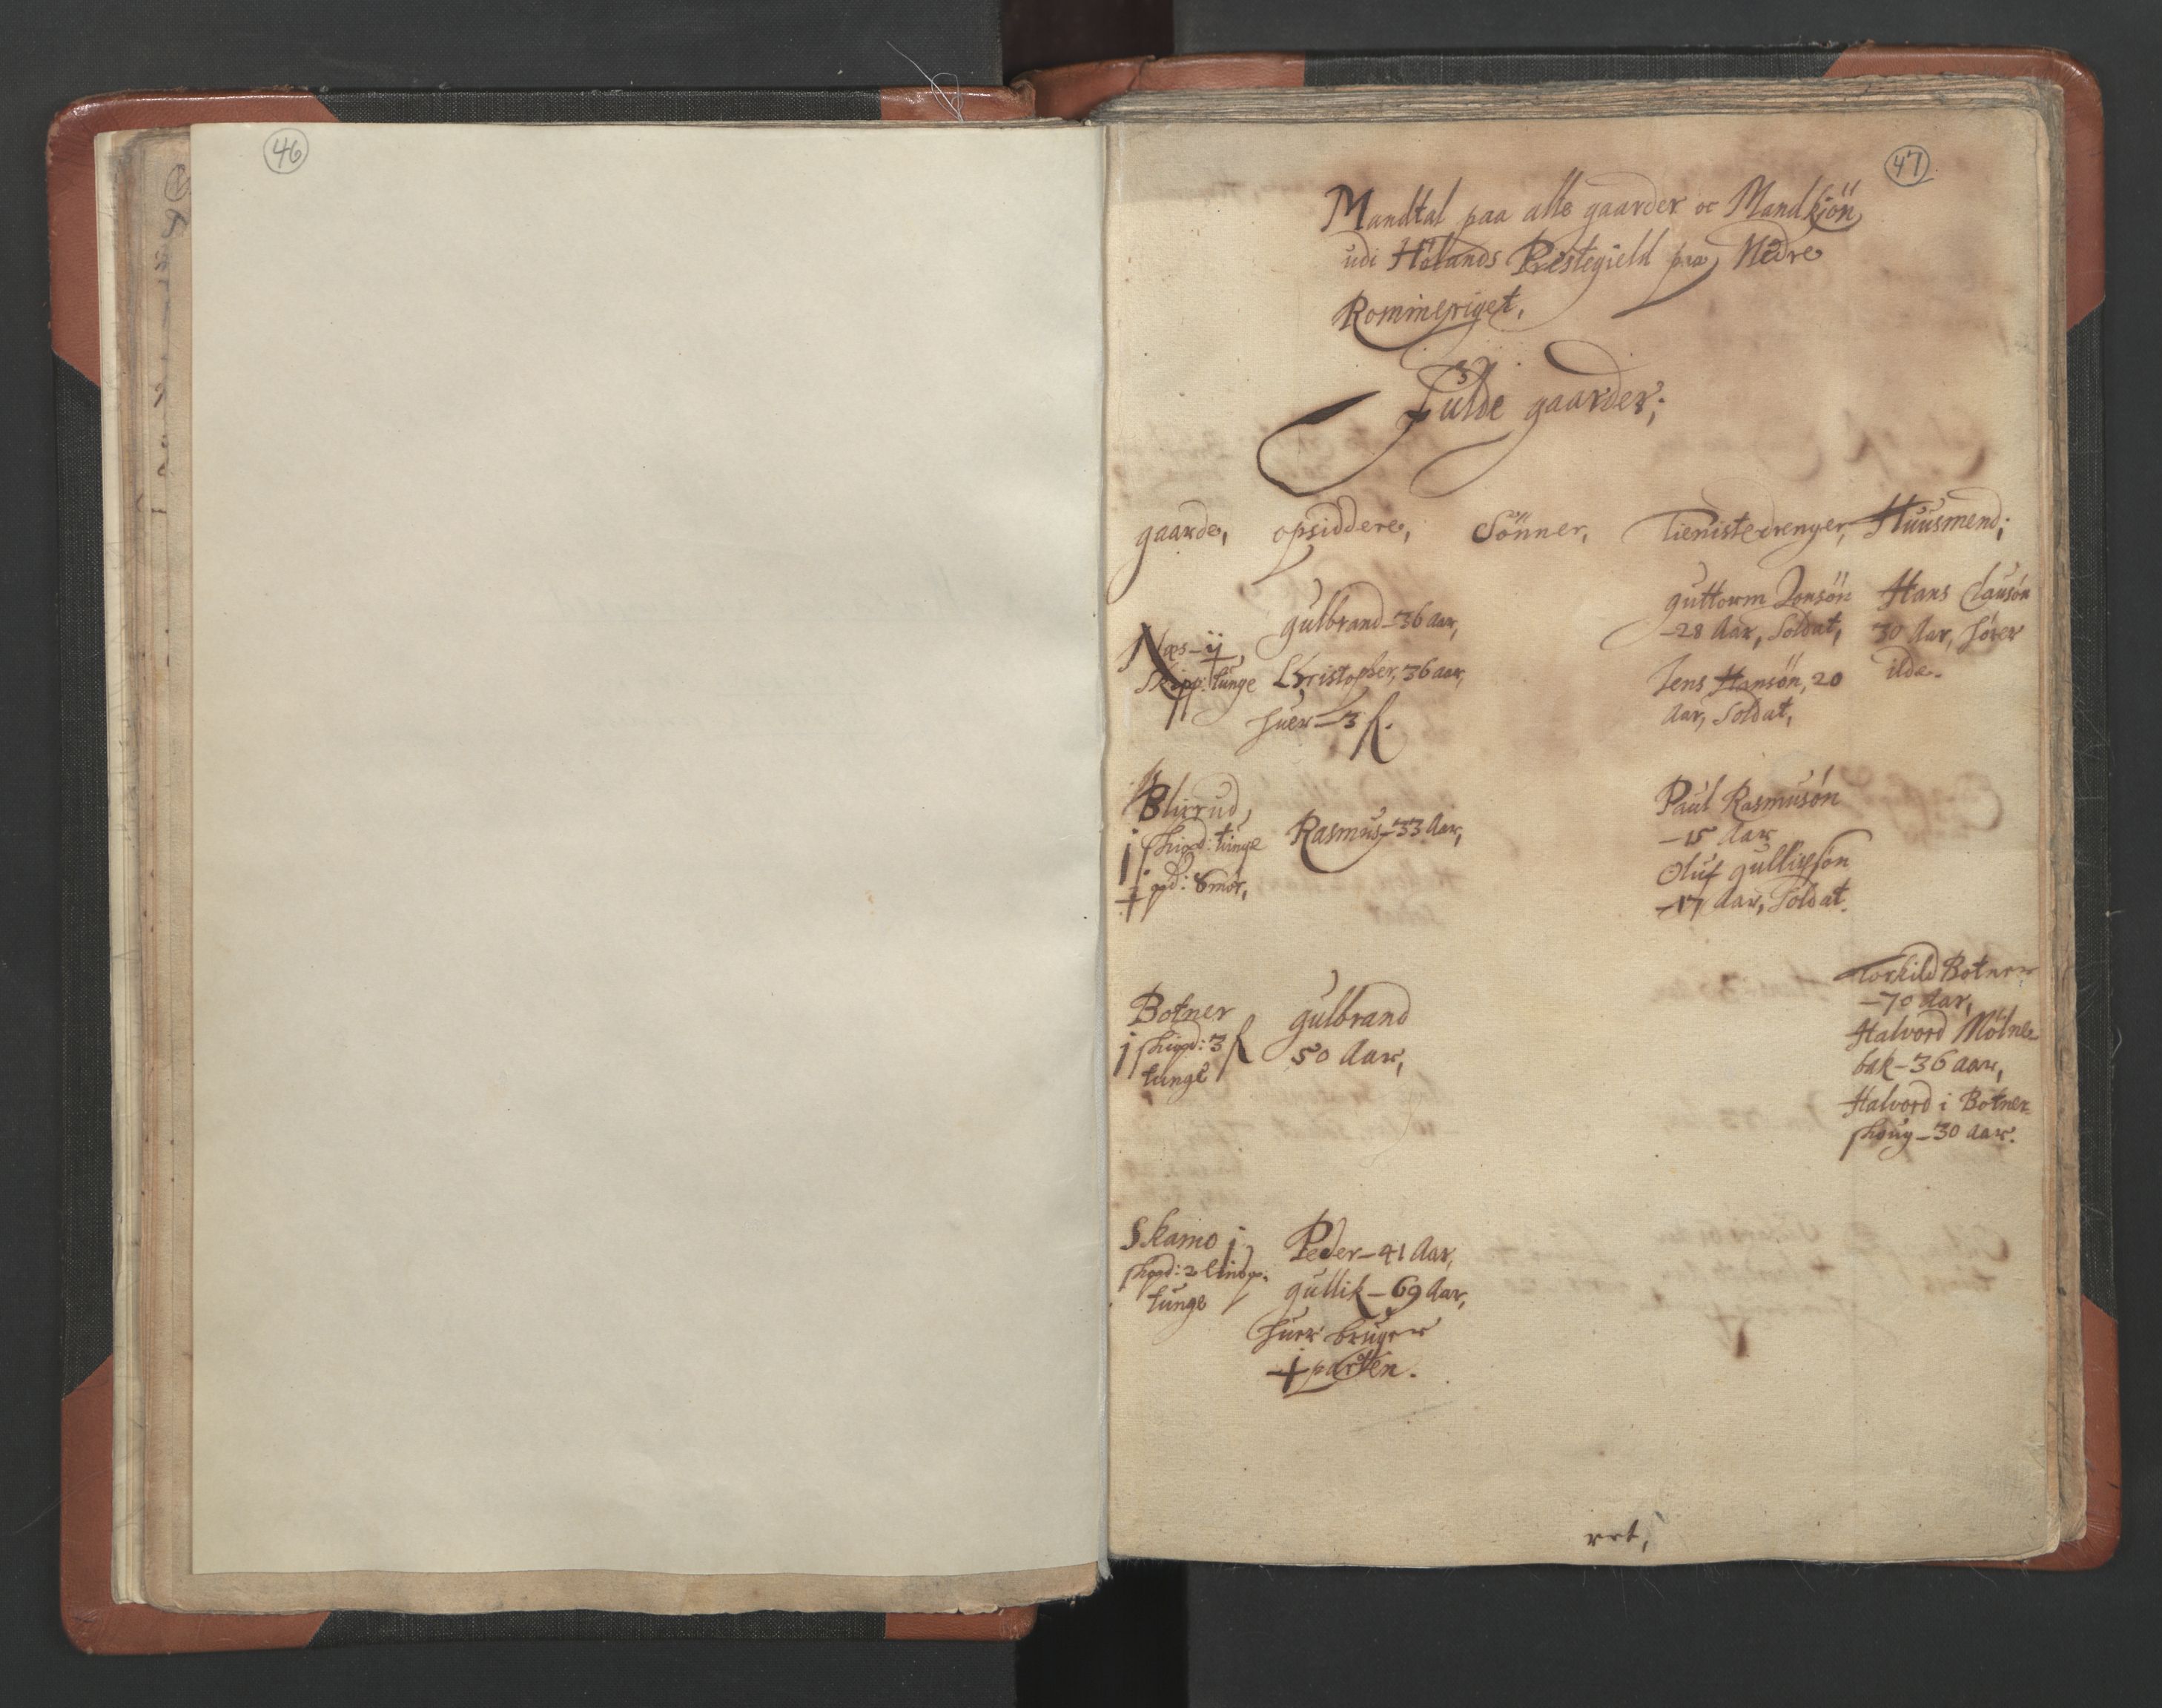 46
47
Mandtal paa alle gaarder oc Mandkiön
udi Hölands Prestegield paa Nedre
Rommeriget,
Fulde gaarder;
gaarde, opsiddere, Sönner, Tienistedrenger, Huusmend;
Næs - ij
Skipp: tunge
gulbrand - 36 aar,
Christopher, 36 aar,
huer - 3 f.
guttorm Jonsön
- 28 Aar, Soldat,
Jens Hansön, 20
Aar, Soldat,
Hans Clausøn
30 Aar, hører
ilde.
Blirrud,
j skipd: tunge
pd: Smør,
Rasmus - 33 Aar,
Paul Rasmusøn
- 15 Aar
Oluf gullichsøn
- 17 Aar, Soldat.
Botner
j skipd: 3 f
tunge
gulbrand
50 Aar,
Torkild Botner
- 70 Aar,
Halvord Mölne
bak - 36 aar,
Halvord i Botner
skoug - 30 Aar.
Skamo j
skpd: 2 lispp:
tunge
Peder - 41 Aar,
gullik - 69 Aar,
huer bruger
parten.